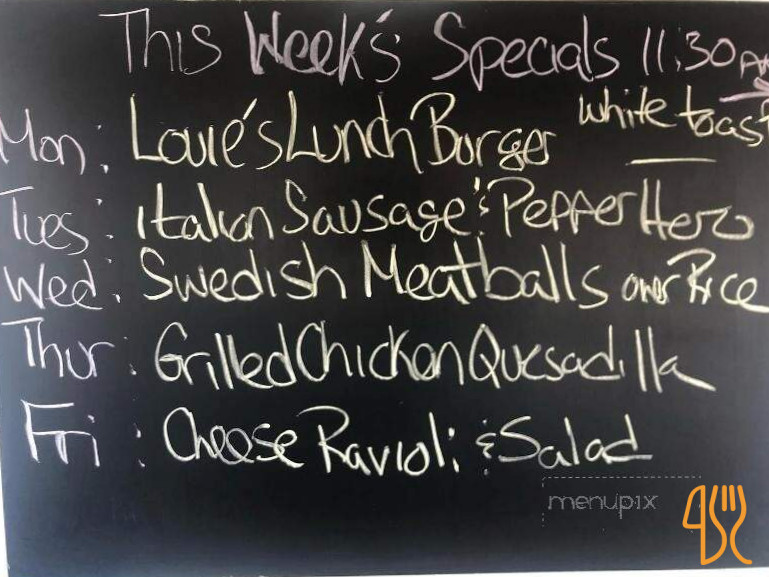 This Week's Specials 11:30 AM
white toast
Mon: Louie's Lunch Burger
Tues: italian Sausage & Pepper Hero
Wed: Swedish Meatballs over Rice
Thur: Grilled Chicken Quesadilla
Fri: Cheese Ravioli & Salad
menupix